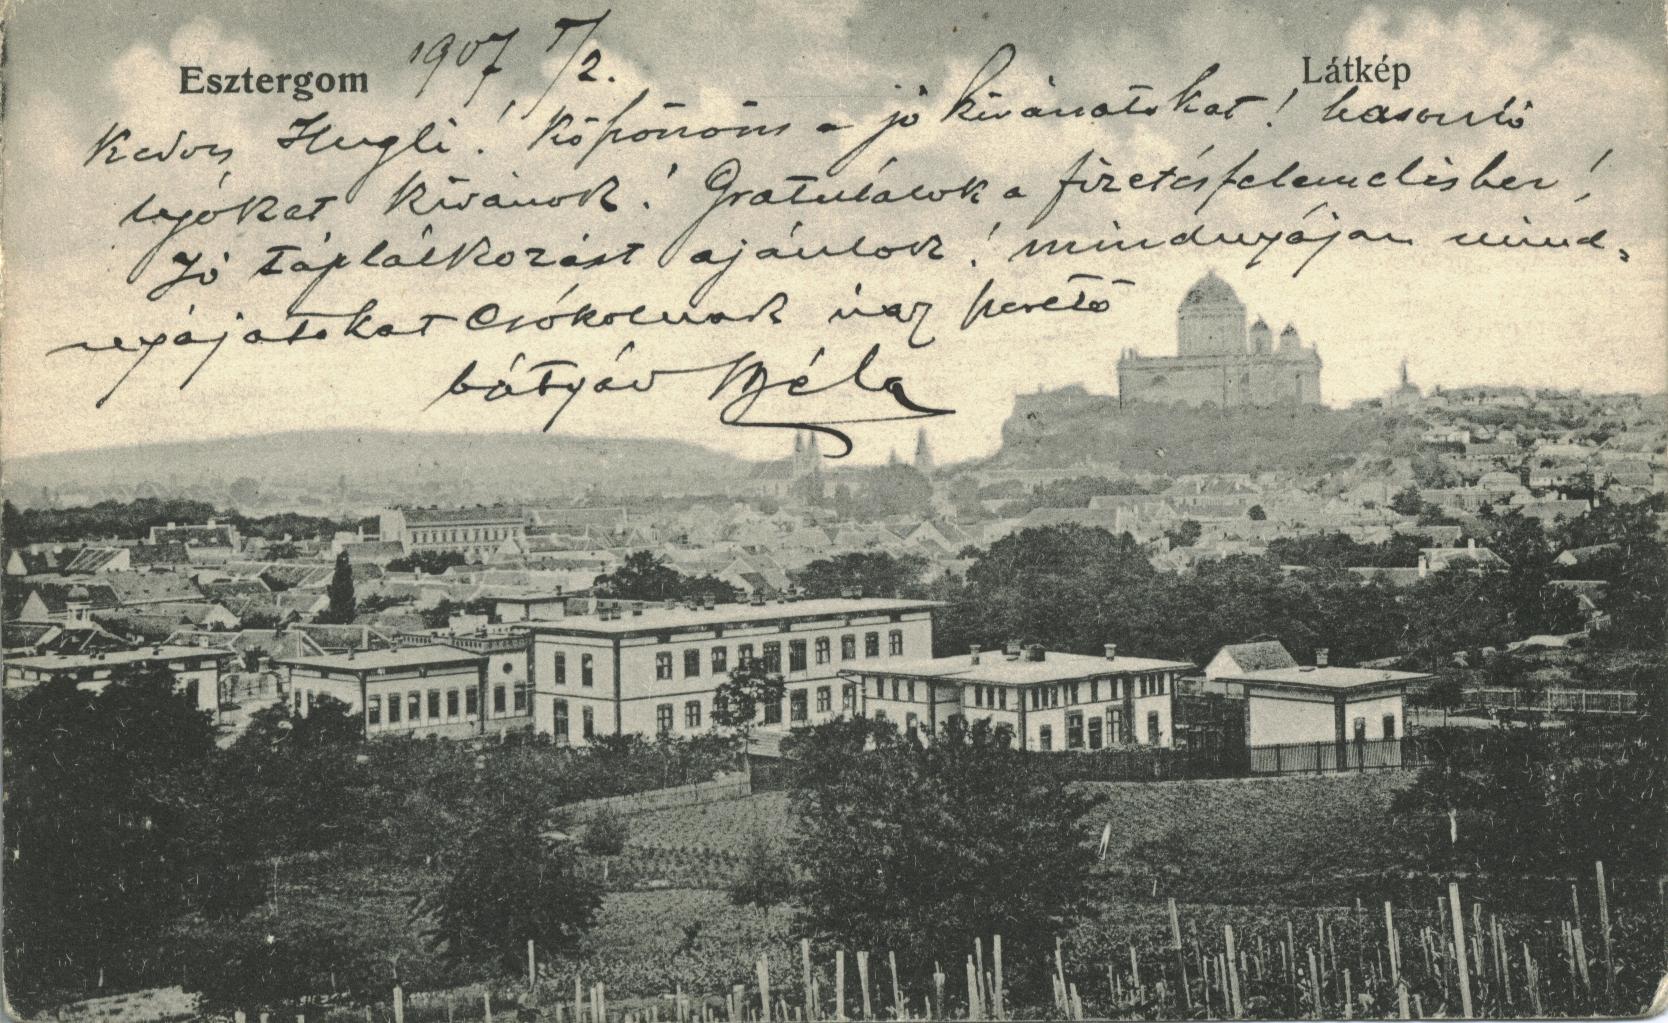 Esztergom
1907 I/2.
Látkép
Kedves Hugli! Köszönöm a jó kívánatokat! hasonló
jókat kívánok! Gratulálok a fizetésfelemeléshez!
Jó táplálkozást ajánlok! mindnyájan mind-
nyájatokat csókolnak úgy szerető
bátyád Béla